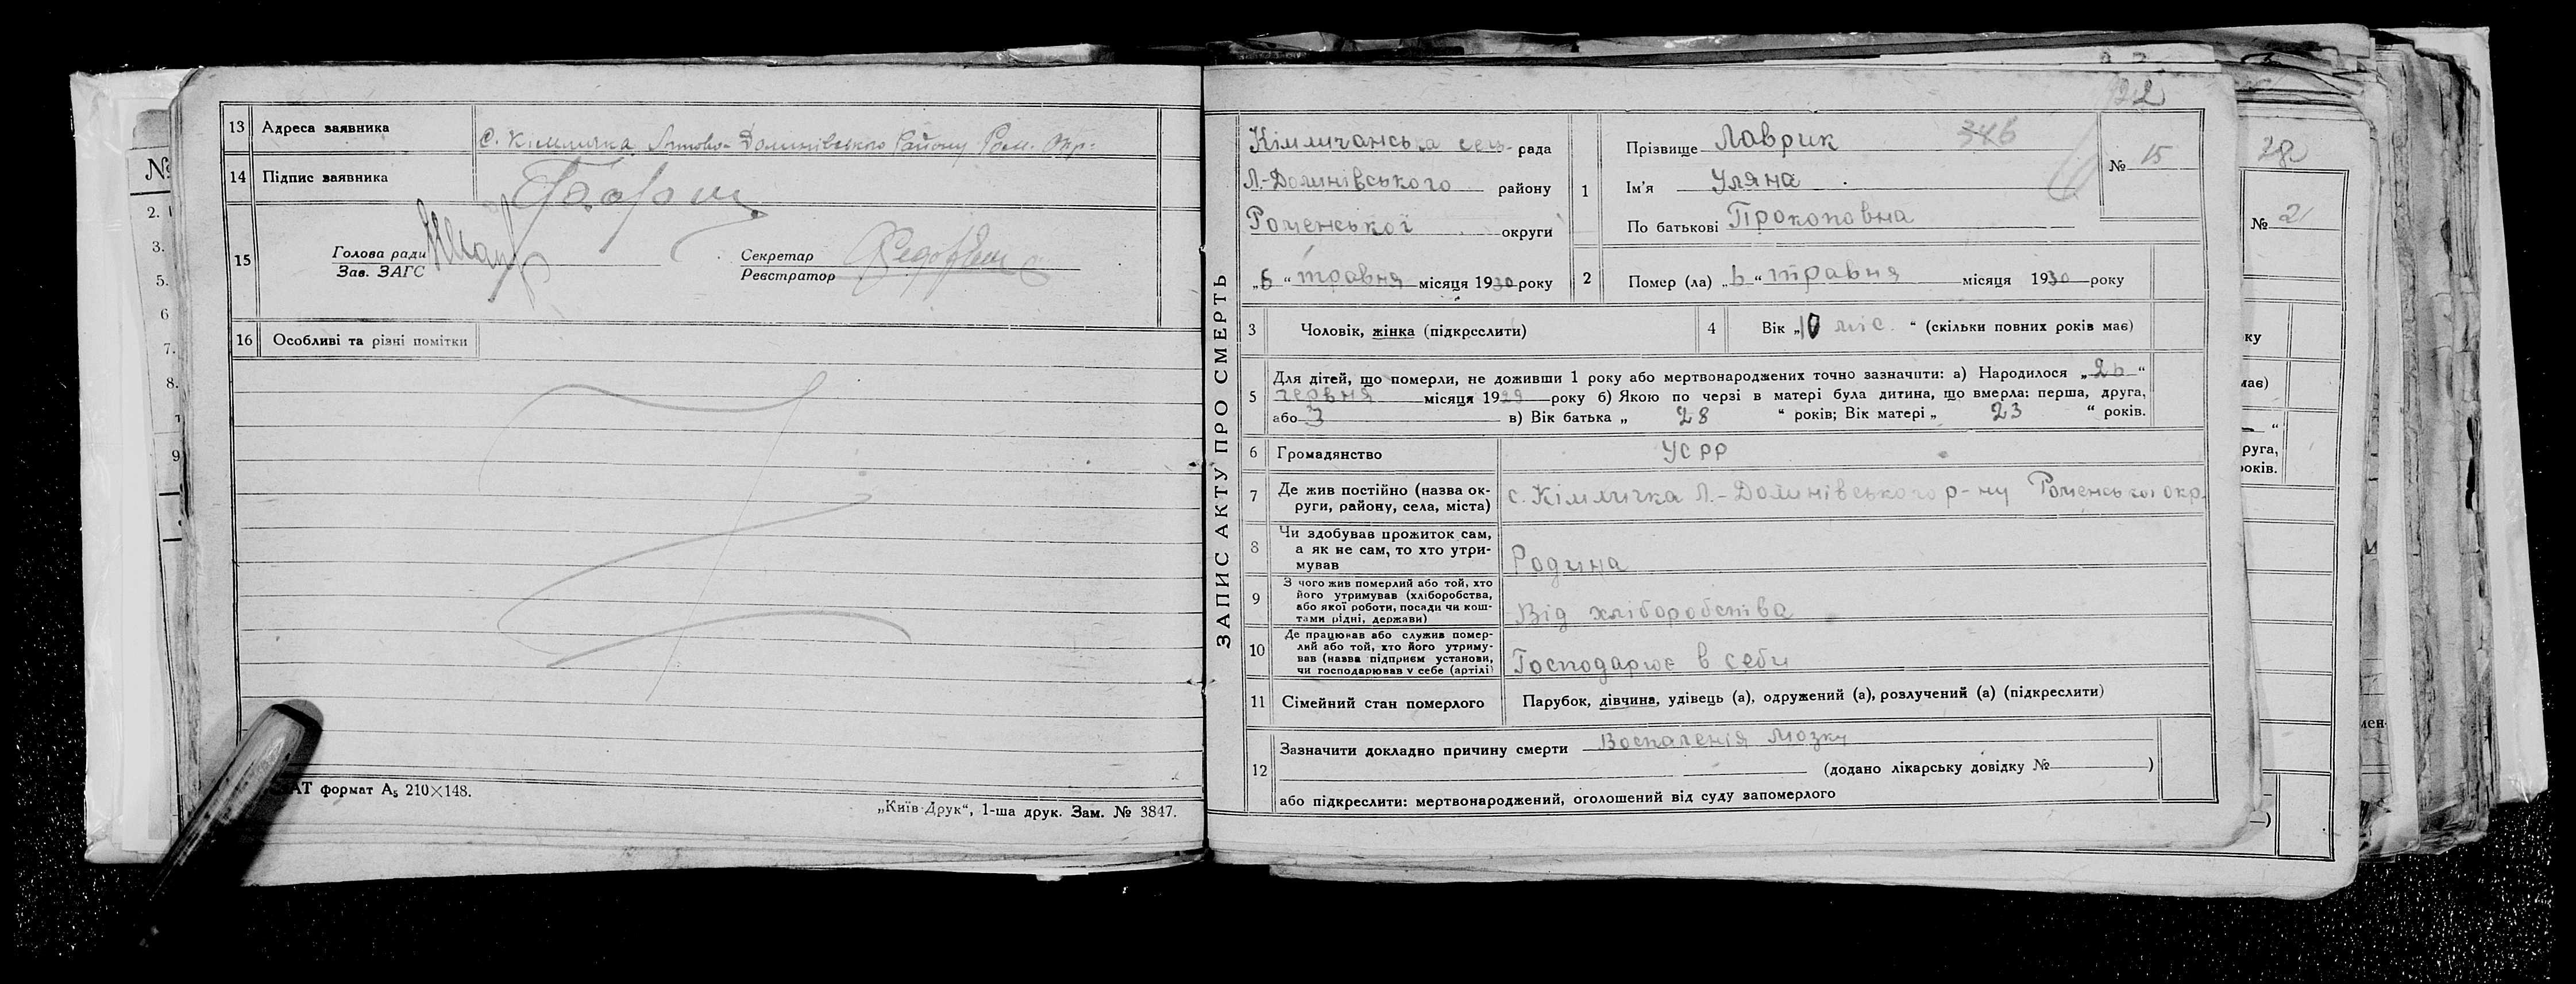 13 Адреса заявника с. Кімличка Липово-Долинівського Району Ром. Окр.
14 Підпис заявника
15 Голова ради
Зав. ЗАГС
Секретар
Реєстратор
16 Особливі та різні помітки
АТ формат А5 210×148.
„Київ-Друк“, 1-ша друк. Зам. № 3847.
№
2.
3.
5.
6
7.
8.
9
ЗАПИС АКТУ ПРО СМЕРТЬ
22
Кімличанська сель- рада
Л.-Долинівського району
Роменської округи
„6“ травня місяця 1930 року
1 Прізвище Лаврик 346
Ім'я Уляна
По батькові Прокоповна
№ 15
2 Помер (ла) „6“ травня місяця 1930 року
3 Чоловік, жінка (підкреслити)
4 Вік „10 міс.“ (скільки повних років має)
5 Для дітей, що померли, не доживши 1 року або мертвонароджених точно зазначити: а) Народилося „26“
червня місяця 1929 року б) Якою по черзі в матері була дитина, що вмерла: перша, друга,
або 3 в) Вік батька „ 28 “ років; Вік матері „ 23 “ років.
6 Громадянство УСРР
7 Де жив постійно (назва ок-
руги, району, села, міста) с. Кімличка Л.-Долинівського р-ну Роменської окр.
8 Чи здобував прожиток сам,
а як не сам, то хто утри-
мував Родина
9 З чого жив померлий або той, хто
його утримував (хліборобства,
або якої роботи, посади чи кош-
тами рідні, держави) Від хліборобства
10 Де працював або служив помер-
лий або той, хто його утриму-
вав (назва підприєм установи,
чи господарював у себе (артілі) Господарює в себи
11 Сімейний стан померлого Парубок, дівчина, удівець (а), одружений (а), розлучений (а) (підкреслити)
12 Зазначити докладно причину смерти Воспаленія мозку
(додано лікарську довідку № )
або підкреслити: мертвонароджений, оголошений від суду запомерлого
№ 21
ку
має)
“
руга,
років.
мен-
)